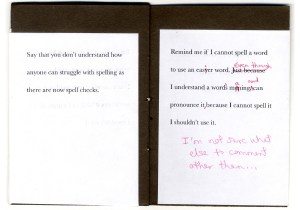 Say that you don't understand how
anyone can struggle with spelling as
there are now spell checks.
Remind me if I cannot spell a word
Even though
to use an easier word. Just because
and
I understand a words meaning can
pronounce it, because I cannot spell it
I shouldn't use it.
I'm not sure what
else to comment
other then...